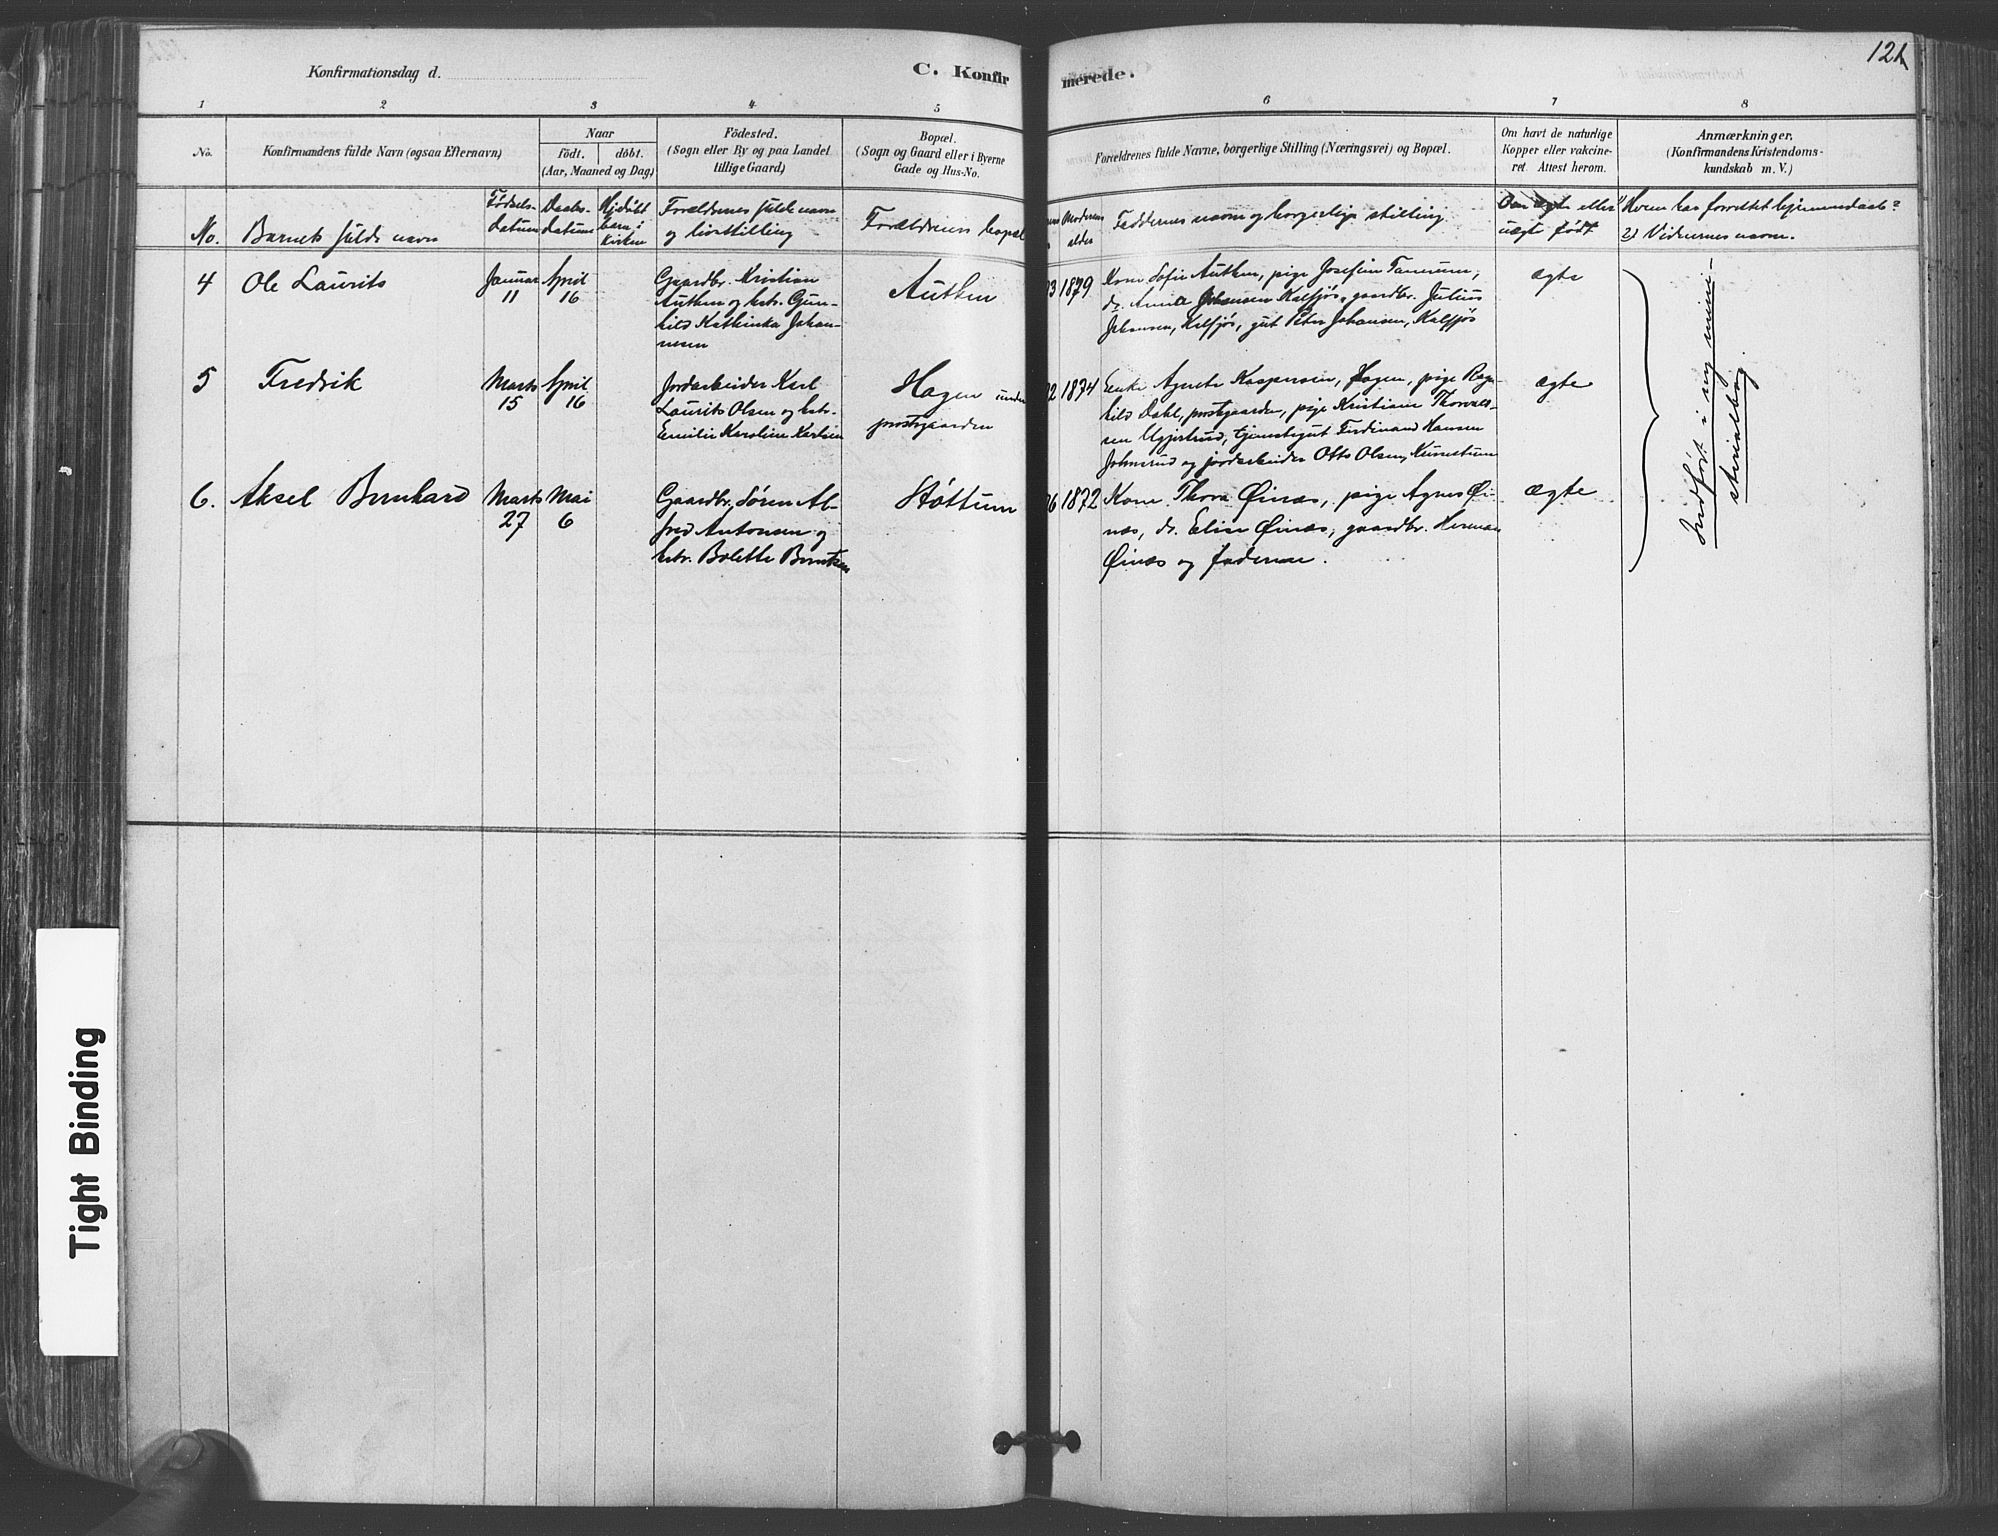 121
Konfirmationsdag d.
C. Konfir
merede.
1 2 3 4 5 6 7 8
No.
Konfirmandens fulde Navn (ogsaa Efternavn)
Naar
födt. döbt.
(Aar, Maaned og Dag)
Födested.
(Sogn eller By og paa Landet
tillige Gaard)
Bopæl.
(Sogn og Gaard eller i Byerne
Gade og Hus-No.
Forældrenes fulde Navne, borgerlige Stilling (Næringsvei) og Bopæl.
Om havt de naturlige
Kopper eller vakcine-
ret. Attest herom.
Anmærkninger.
(Konfirmandens Kristendoms-
kundskab m. V.)
No.
Barnets fulde navn
Fødsels-
datum
Daabs-
datum
Hjdøbt
barn i
kirken
Forældrenes fulde navn
og livsstilling
Forældrenes bopæl
Moderens
alder
Faddernes navn og borgerlige stilling
Om ægte eller
uægte født
1) Hvem har forrettet hjemmedaab?
2) Vidnernes navne.
4
Ole Laurits
Januar
11
April
16
Gaardbr. Kristian
Authen og hstr. Gun-
hild Kathinka Johan-
nesen
Authen
3 1879
Kone Sofie Authen, pige Josefine Tanerum,
do. Anna Johansen Kalfjøs, gaardbr. Julius
Johansen, Kalfjøs, gut Peter Johansen, Kalfjøs
ægte
5
Fredrik
Marts
15
April
16
Jordarbeider Karl
Laurits Olsen og hstr.
Emilie Karoline Karlsen
Hagen under
prestegaarden
2 1874
Enke Agnete Kaspersen, Hagen, pige Rag-
hild Dahl, prestegaarden, pige Kristiane Thorvald-
sen, tjenestegut Ferdinand Hansen
Johnsrud og jordarbeider Otto Olsen,
ægte
6.
Aksel Bernhard
Marts
27
Mai
6
Gaardbr. Søren Al-
fred Antonsen og
hstr. Bolette Berntsen
Støttum
6 1872
Kone Thora Øinæs, pige Agnes Øi-
næs, do. Elise Øinæs, gaardbr. Herman
Øinæs og faderen.
ægte
Indført i ny mini-
sterialbog.
Tight Binding